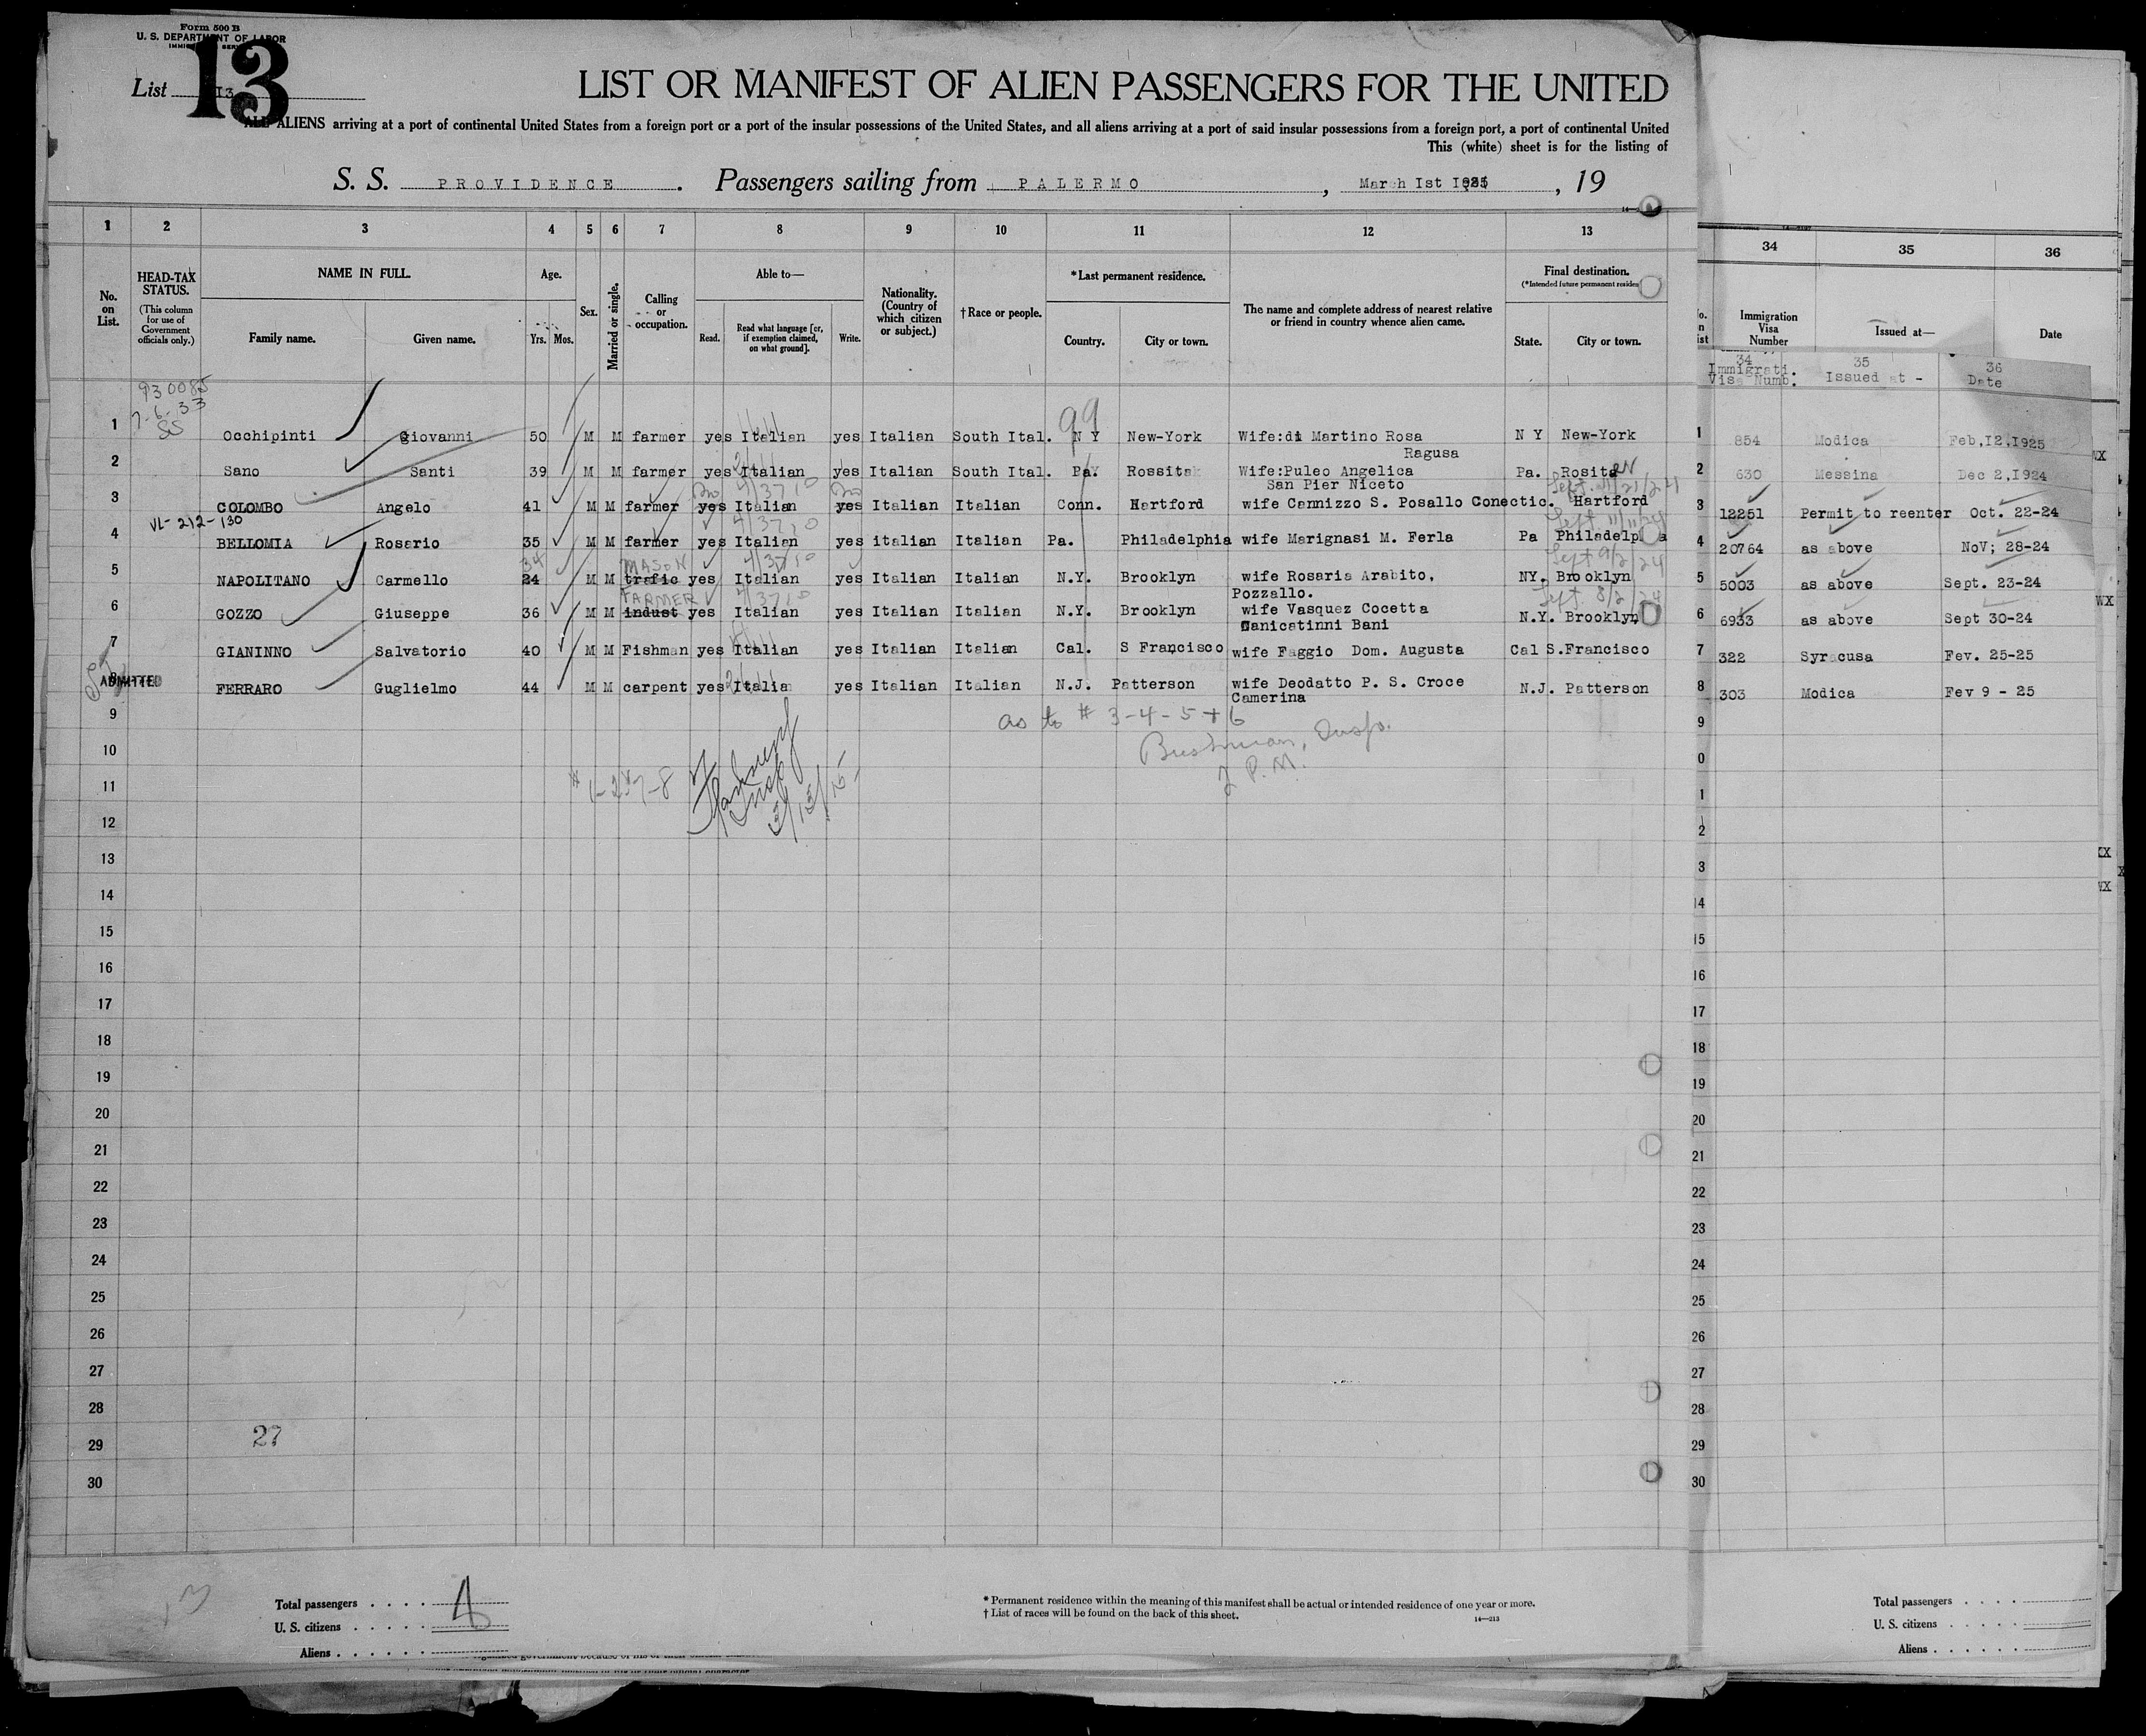 Form 500 B
U. S. DEPARTMENT OF LABOR
IMMIGRATION SERVICE
13
List I3
LIST OR MANIFEST OF ALIEN PASSENGERS FOR THE UNITED
ALL ALIENS arriving at a port of continental United States from a foreign port or a port of the insular possessions of the United States, and all aliens arriving at a port of said insular possessions from a foreign port, a port of continental United
This (white) sheet is for the listing of
S. S. PROVIDENCE. Passengers sailing from PALERMO, March Ist I925, 19
1 2 3 4 5 6 7 8 9 10 11 12 13 34 35 36
No. on List.
HEAD-TAX STATUS.
(This column for use of Government officials only.)
NAME IN FULL.
Family name. Given name.
Age.
Yrs. Mos.
Sex.
Married or single.
Calling or occupation.
Able to—
Read. Read what language [or, if exemption claimed, on what ground]. Write.
Nationality. (Country of which citizen or subject.)
† Race or people.
*Last permanent residence.
Country. City or town.
The name and complete address of nearest relative or friend in country whence alien came.
Final destination.
(*Intended future permanent residen
State. City or town.
Immigration Visa Number Issued at— Date
34 35 36
Immigrati. Visa Numb. Issued at - Date
930085
7-6-33
SS
99
1 Occhipinti Giovanni 50 M M farmer yes Italian yes Italian South Ital. N Y New-York Wife:di Martino Rosa N Y New-York 1 854 Modica Feb,I2,I925
Ragusa
2 Sano Santi 39 M M farmer yes Italian yes Italian South Ital. Pa. Rossita Wife:Puleo Angelica Pa. Rosita 2 630 Messina Dec 2,I924
San Pier Niceto
3 COLOMBO Angelo 41 M M farmer yes Italian yes Italian Italian Conn. Hartford wife Cannizzo S. Posallo Conectic. Hartford 3 12251 Permit to reenter Oct. 22-24
VL-212-130
4 BELLOMIA Rosario 35 M M farmer yes Italian yes italian Italian Pa. Philadelphia wife Marignasi M. Ferla Pa Philadelp a 4 20764 as above NoV; 28-24
34 MASON
5 NAPOLITANO Carmello 24 M M trafic yes Italian yes Italian Italian N.Y. Brooklyn wife Rosaria Arabito, NY. Brooklyn 5 5003 as above Sept. 23-24
Pozzallo.
FARMER
6 GOZZO Giuseppe 36 M M indust yes Italian yes Italian Italian N.Y. Brooklyn wife Vasquez Cocetta N.Y. Brooklyn 6 6933 as above Sept 30-24
Canicatinni Bani
7 GIANINNO Salvatorio 40 M M Fishman yes Italian yes Italian Italian Cal. S Francisco wife Faggio Dom. Augusta Cal S.Francisco 7 322 Syracusa Fev. 25-25
ADMITTED
8 FERRARO Guglielmo 44 M M carpent yes Italia yes Italian Italian N.J. Patterson wife Deodatto P. S. Croce N.J. Patterson 8 303 Modica Fev 9 - 25
Camerina
9 as to # 3-4-5+6 9
10 Bushman, Insp. 0
2 P.M.
11 1
12 2
13 3
14 14
15 15
16 16
17 17
18 18
19 19
20 20
21 21
22 22
23 23
24 24
25 25
26 26
27 27
28 28
27
29 29
30 30
Total passengers
U. S. citizens
Aliens
* Permanent residence within the meaning of this manifest shall be actual or intended residence of one year or more.
† List of races will be found on the back of this sheet.
14—213
Total passengers
U. S. citizens
Aliens